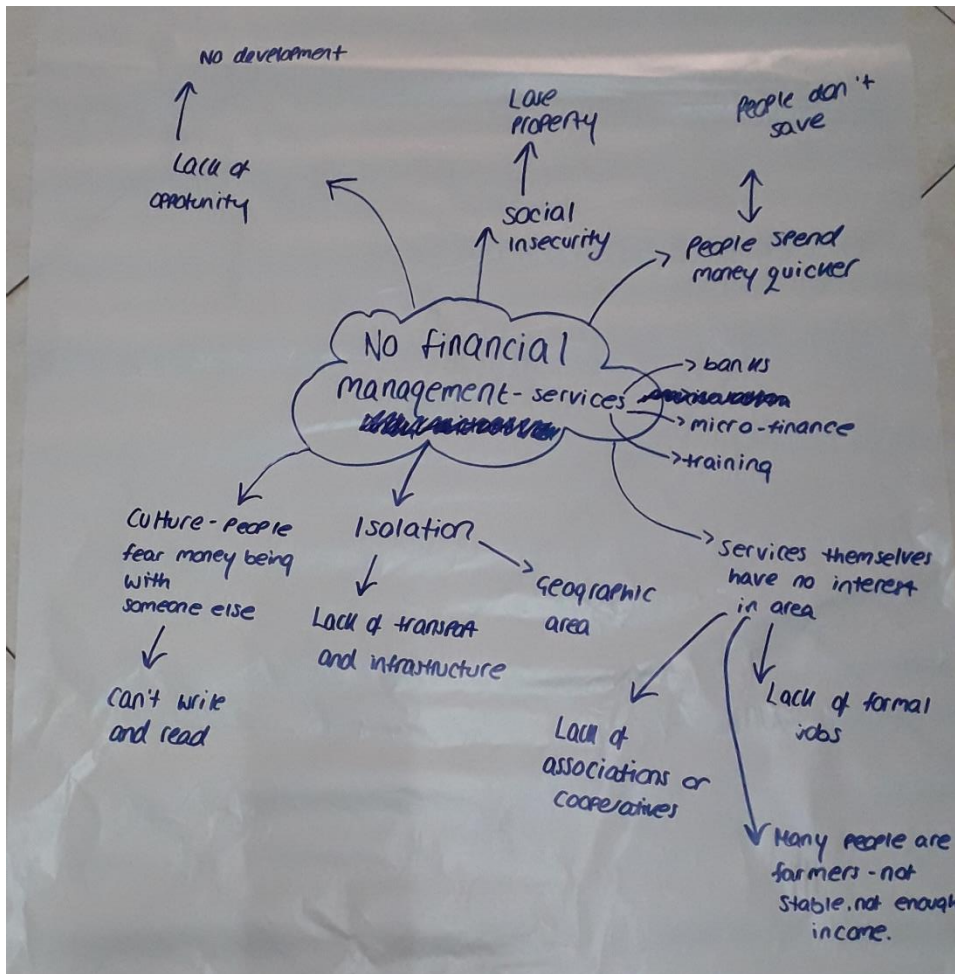 No development
Lack of
oppotunity
Lose
property
social
insecurity
People don't
save
People spend
money quicker
No financial
management-services
banks
micro-finance
training
Culture-people
fear money being
with
someone else
can't write
and read
Isolation
Lack of transport
and infrastructure
Geographic
area
services themselves
have no interest
in area
Lack of
associations or
cooperatives
Lack of formal
jobs
Many people are
farmers-not
stable, not enough
income.